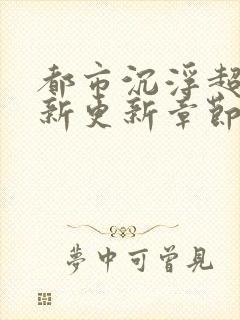 都市沉浮超
新更新章節
夢中可曾見